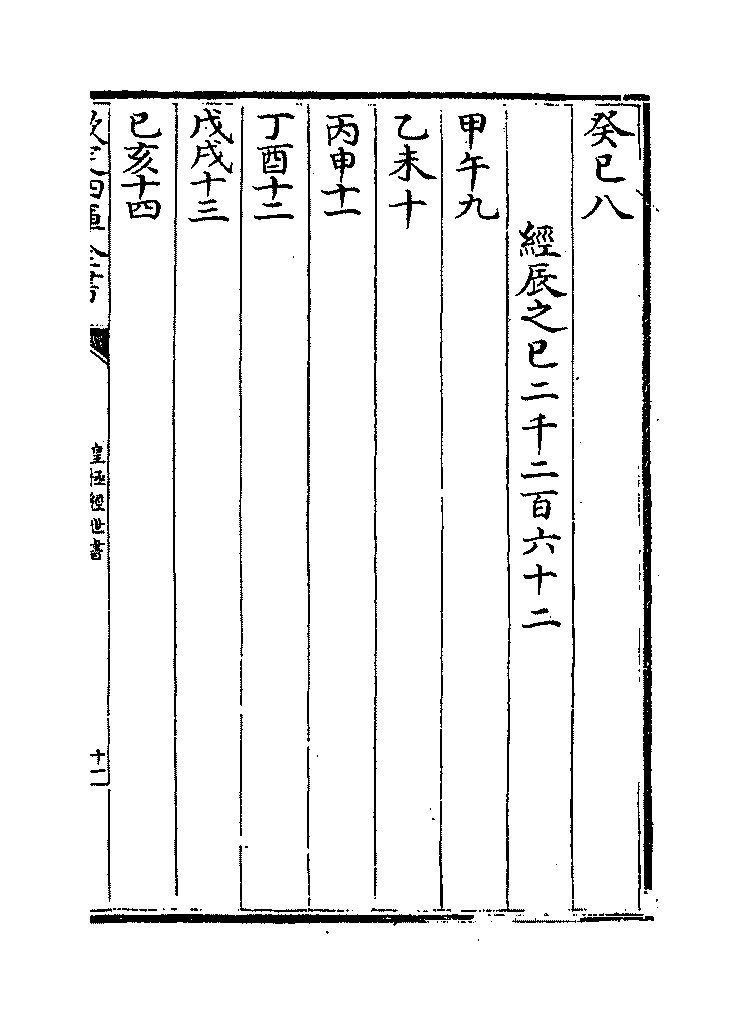 癸巳八
經辰之巳二千二百六十二
甲午九
乙未十
丙申十一
丁酉十二
戊戌十三
己亥十四
欽定四庫全書
皇極經世書
十一